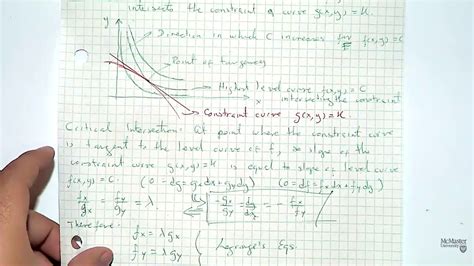 intersects the constraint curve g(x,y) = K.
y
Direction in which C increases for f(x,y) = C
Point of tangency
Highest level curve f(x,y) = C
x intersecting the constraint
Constraint curve g(x,y) = K
Critical Intersection: At point where the constraint curve
is tangent to the level curve of f, so slope of the
constraint curve g(x,y) = K is equal to slope of level curve
f(x,y) = C. (0 = dg = gₓdx + g_y dy) (0 = df = fₓdx + f_y dy)
fₓ/gₓ = f_y/g_y = λ. -gₓ/g_y = dy/dx = -fₓ/f_y
Therefore:
fₓ = λgₓ
f_y = λg_y Lagrange's Eqs.
McMaster
University